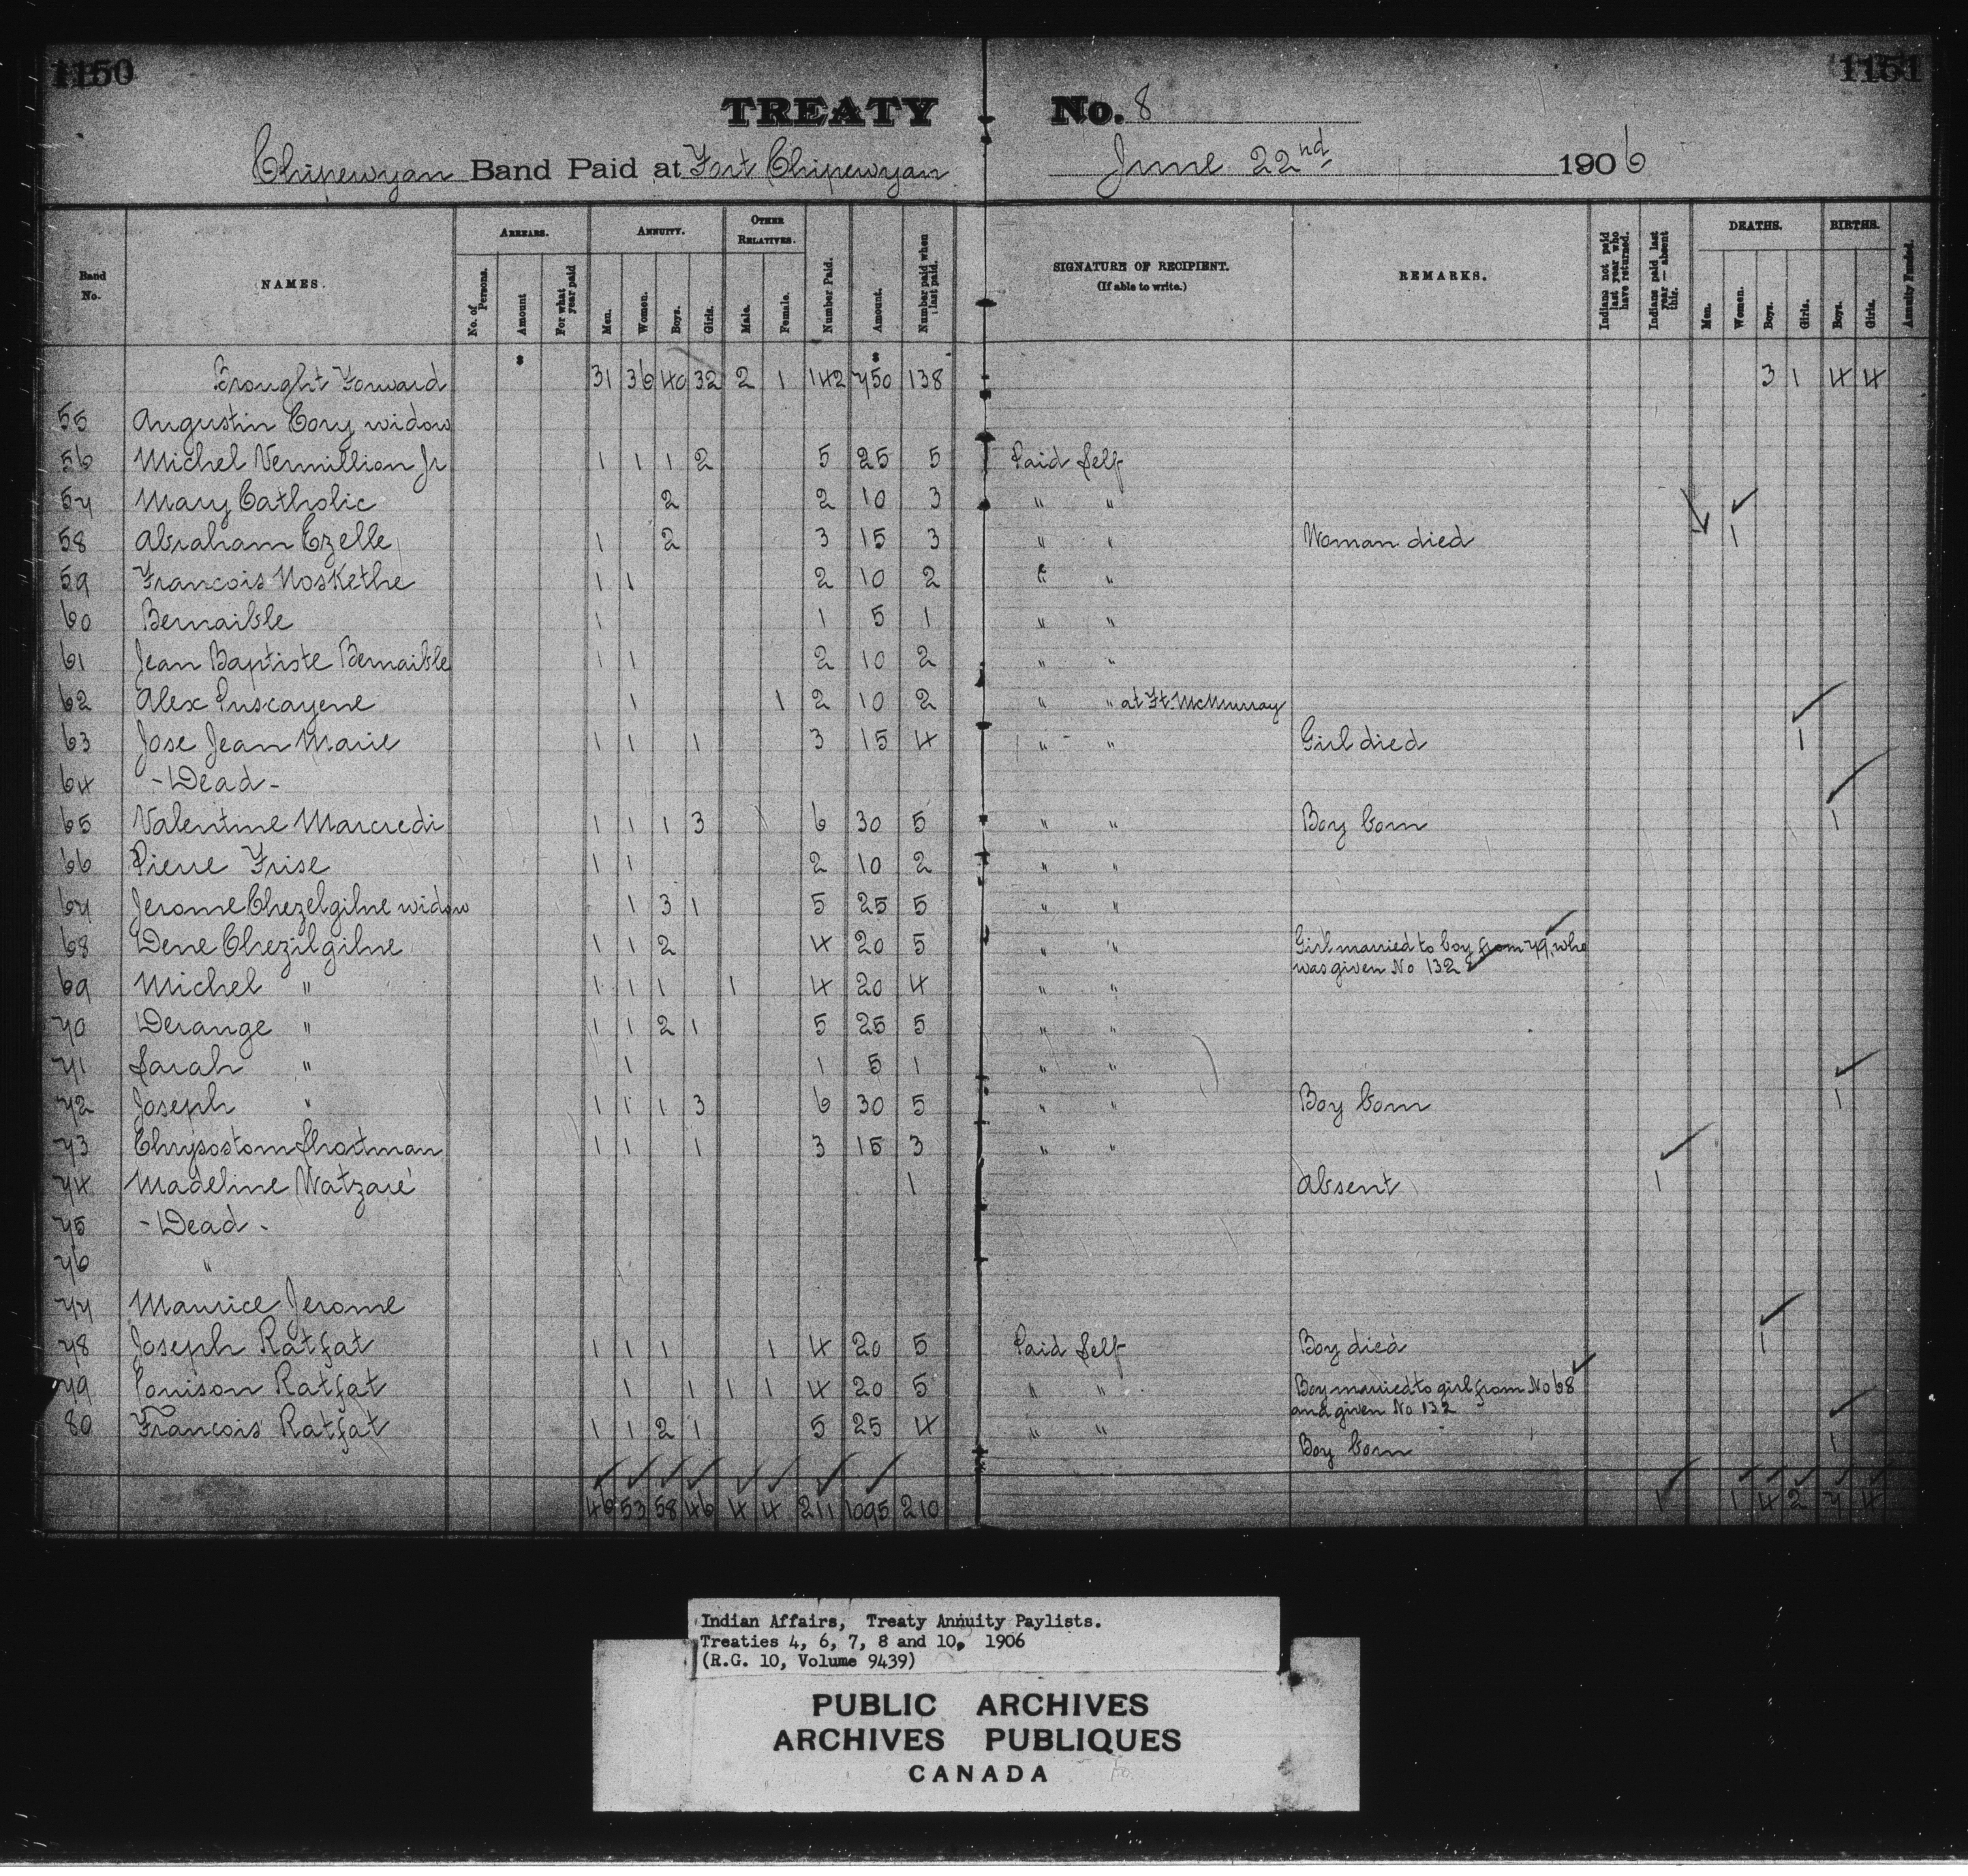 1150
1151
TREATY No. 8
Chipewyan Band Paid at Fort Chipewyan June 22nd 1906
Band No. NAMES. ARREARS. No. of Persons. Amount For what year paid ANNUITY. Men. Women. Boys. Girls. OTHER RELATIVES. Male. Female. Number Paid. Amount. Number paid when last paid. SIGNATURE OF RECIPIENT. (If able to write.) REMARKS. Indians not paid last year who have returned. Indians paid last year — absent this. DEATHS. Men. Women. Boys. Girls. BIRTHS. Boys. Girls. Annuity Funded.
$ $
Brought Forward 31 36 40 32 2 1 142 750 138 3 1 4 4
55 Augustin Cory widow
56 Michel Vermillion Jr 1 1 1 2 5 25 5 Paid Self
57 Mary Catholic 2 2 10 3 " "
58 Abraham Ezelle 1 2 3 15 3 " " Woman died 1
59 Francois Noskethe 1 1 2 10 2 " "
60 Bernaible 1 1 5 1 " "
61 Jean Baptiste Bernaible 1 1 2 10 2 " "
62 Alex Puscayene 1 1 2 10 2 " " at Ft. McMurray
63 Jose Jean Marie 1 1 1 3 15 4 " " Girl died 1
64 - Dead -
65 Valentine Marcredi 1 1 1 3 6 30 5 " " Boy born 1
66 Pierre Frise 1 1 2 10 2 " "
67 Jerome Chezelgilne widow 1 3 1 5 25 5 " "
68 Dene Chezilgilne 1 1 2 4 20 5 " " Girl married to boy from 79, who
was given No 132
69 Michel " 1 1 1 1 4 20 4 " "
70 Derange " 1 1 2 1 5 25 5 " "
71 Sarah " 1 1 5 1 " "
72 Joseph " 1 1 1 3 6 30 5 " " Boy born 1
73 Chrysostom Shortman 1 1 1 3 15 3 " "
74 Madeline Watzaré 1 Absent 1
75 - Dead -
76 "
77 Maurice Jerome
78 Joseph Ratfat 1 1 1 1 4 20 5 Paid Self Boy died 1
79 Louison Ratfat 1 1 1 1 4 20 5 " " Boy married to girl from No 68
and given No 132
80 Francois Ratfat 1 1 2 1 5 25 4 " "
Boy born 1
46 53 58 46 4 4 211 1095 210 1 1 4 2 7 4
Indian Affairs, Treaty Annuity Paylists.
Treaties 4, 6, 7, 8 and 10, 1906
(R.G. 10, Volume 9439)
PUBLIC ARCHIVES
ARCHIVES PUBLIQUES
CANADA